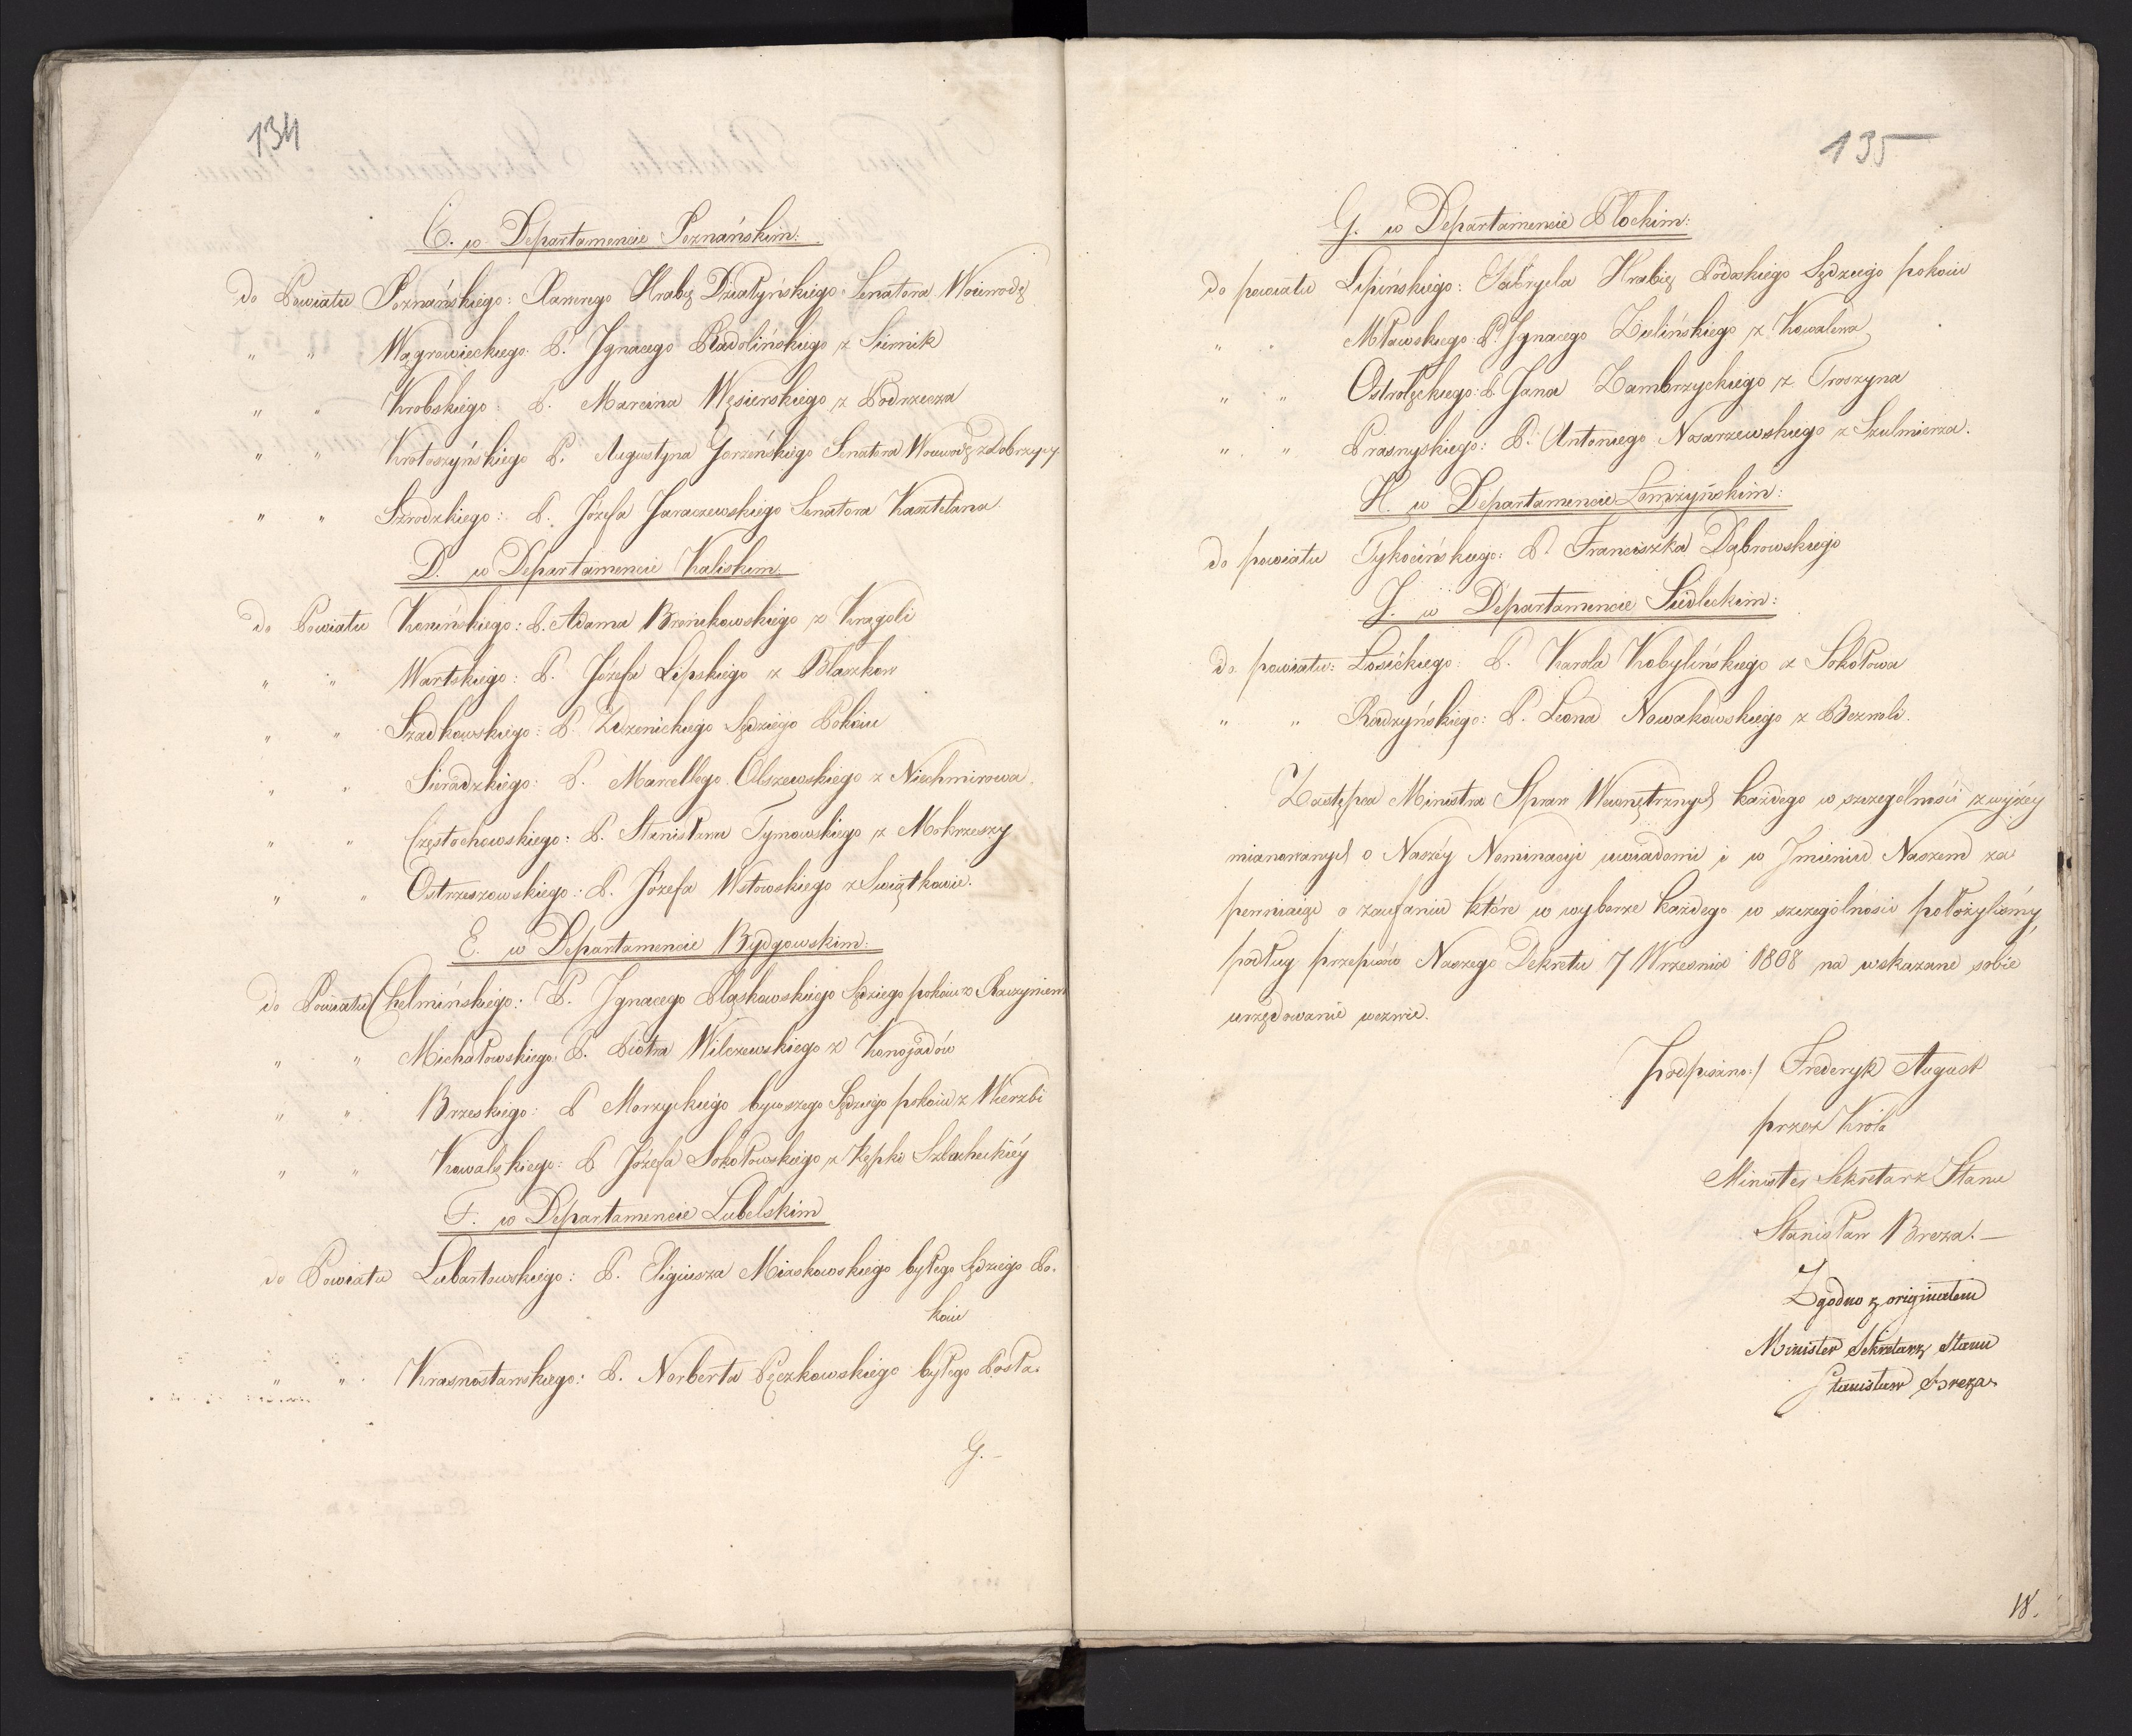 134
C. w Departamencie Poznańskim:
do Powiatu Poznańskiego: Xawerego Hrabię Działyńskiego Senatora Woiewodę
" " Wągrowieckiego: P. Ignacego Radolińskiego z Siernik
" " Krobskiego: P. Marcina Węsierskiego z Podrzecza
" " Krotoszyńskiego P. Augustyna Gorzeńskiego Senatora Woiewodę z Dobrzycy
" " Szrodzkiego: P. Józefa Jaraczewskiego Senatora Kasztelana
D. w Departamencie Kaliskim
do Powiatu Konińskiego: P. Adama Bronikowskiego z Krągoli
" " Wartskiego: P. Józefa Lipskiego z Błaszkow
" " Szadkowskiego: P. Sędziego Pokoiu
" " Sieradzkiego: P. Marcellego Olszewskiego z Niechmirowa
" " Częstochowskiego: P. Stanisława Tymowskiego z Mokrzeszy
" " Ostrzeszowskiego: P. Józefa Wstowskiego z Swiątkowie.
E. w Departamencie Bydgowskim:
do Powiatu Chełmińskiego: P. Ignacego Pląskowskiego Sędziego pokoiu w
" " Michałowskiego: P. Piotra Wilczewskiego z Konojadów
" " Brzeskiego: P Morzyckiego bywszego Sędziego pokoiu z Wierzbi
" " Kowalskiego: P Józefa Sokołowskiego z Kępki Szlacheckiéy
F. w Departamencie Lubelskim
do Powiatu Lubartowskiego: P. Eligiusza Miaskowskiego byłego Sędziego Po-
koiu
" " Krasnostawskiego: P. Norberta Pęczkowskiego byłego Posła.
G.-
135
G. w Departamencie Płockim:
do powiatu Lipińskiego: Gabryela Hrabię Podoskiego Sędziego pokoiu
" " Mławskiego: P. Ignacego Zielińskiego z Kowalewa
" " Ostrołęckiego: P. Jana Zambrzyckiego z Troszyna
" " Prasnyskiego: P. Antoniego Nosarzewskiego z Szulmierza.
H. w Departamencie Łomżyńskim:
do powiatu Tykocińskiego: P. Franciszka Dąbrowskiego
J. w Departamencie Siedleckim:
do powiatu: Łosickiego: P. Karola Kobylińskiego z Sokołowa
" " Radzyńskiego: P. Leona Nowakowskiego z Bezwoli.
Zastępca Ministra Spraw Wewnętrznych każdego w szczególności z wyżéy
mianowanych o Naszéy Nominacyi uwiadomi i w Imieniu Naszem za
pewniaiąc o zaufaniu które w wyborze każdego w szczególnosci położyliśmy,
podług przepisów Naszego Dekretu 7 Wrzesnia 1808 na wskazane sobie
urzędowanie wezwie.
podpisano:/ Frederyk August
przez Króla
Minister Sekretarz Stanu
Stanisław Breza. —
Zgodno z originałem
Minister Sekretarz Stanu
Stanisław Breza
18.